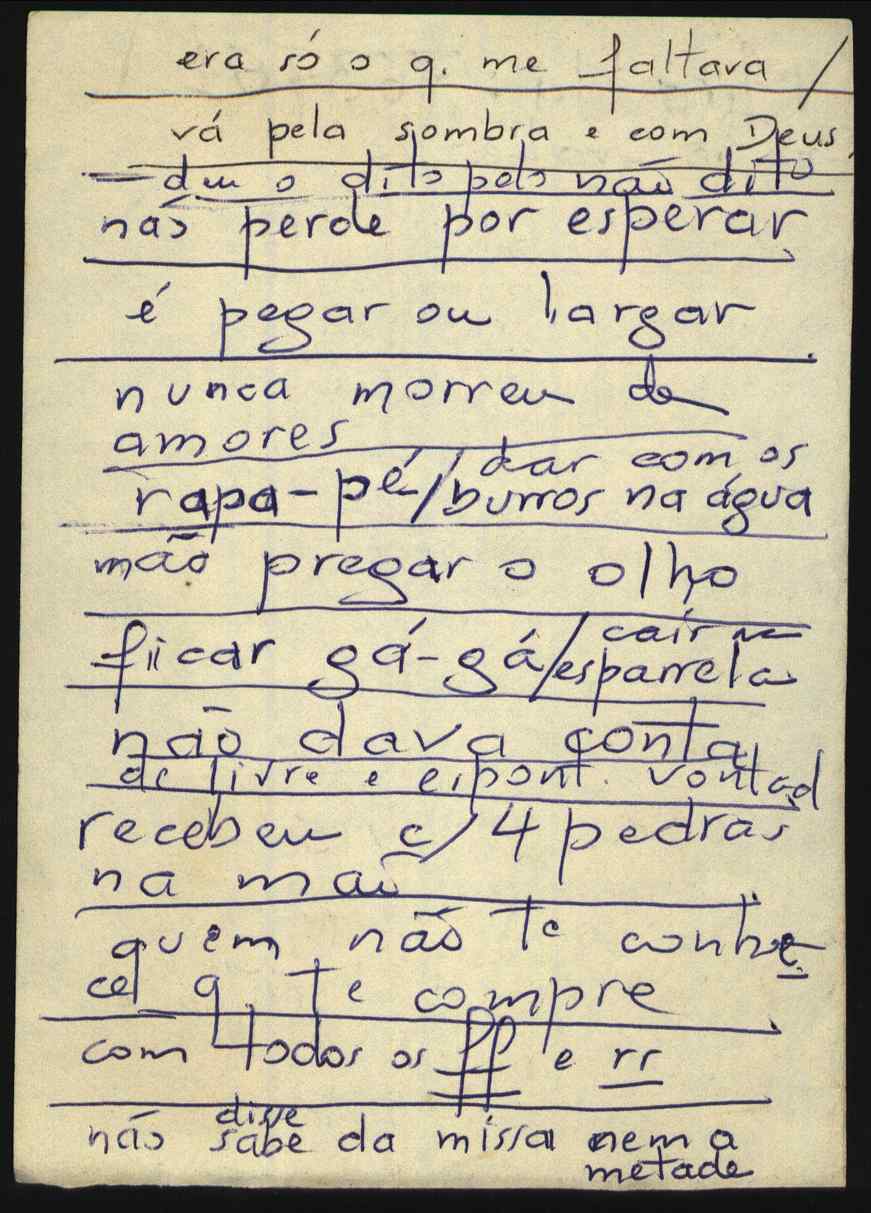 era só o q. me faltava /
vá pela sombra e com Deus
deu o dito pelo não dito
não perde por esperar
é pegar ou largar
nunca morreu de
amores
rapa-pé / dar com os
burros na água
não pregar o olho
ficar gá-gá / cair na
esparrela
não dava conta
de livre e espont. vontad
recebeu c/ 4 pedras
na mão
quem não te conhe
ce q te compre
com todos os ff e rr
disse
não sabe da missa nem a
metade